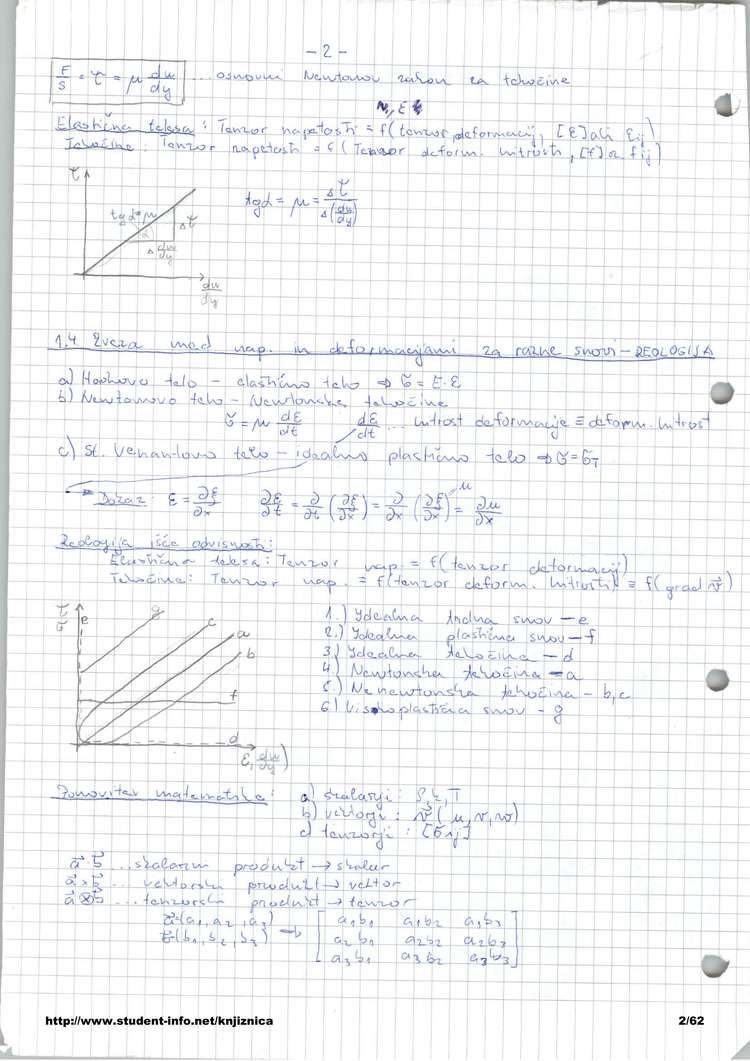 - 2 -
F/S = τ = μ du/dy ... osnovni Newtonov zakon za tekočine
Elastična telesa: Tenzor napetosti = f(tenzor deformacij, [ε] ali εij)
Tekočine: Tenzor napetosti = f(Tenzor deform. hitrosti, [f] a. fij)
τ
tg α = μ
Δτ
α
Δ du/dy
du/dy
tgα = μ = Δτ / Δ(du/dy)
1.4 Zveza med nap. in deformacijami za razne snovi - REOLOGIJA
a) Hookovo telo - elastično telo ⇒ σ = E·ε
b) Newtonovo telo - Newtonske tekočine
σ = μ dε/dt dε/dt ... hitrost deformacije ≡ deform. hitrost
c) St. Venantovo telo - idealno plastično telo ⇒ σ = σT
Dokaz: ε = ∂ξ/∂x ∂ε/∂t = ∂/∂t (∂ξ/∂x) = ∂/∂x (∂ξ/∂x) = ∂u/∂x
u
Reologija išče odvisnosti:
Elastična telesa: Tenzor nap. = f(tenzor deformacij)
Tekočine: Tenzor nap. = f(tenzor deform. hitrosti) = f(grad v⃗)
τ
σ
e
g
c
a
b
f
d
ε, du/dy)
1.) Idealna trdna snov - e
2.) Idealna plastična snov - f
3.) Idealna tekočina - d
4.) Newtonska tekočina - a
5.) Nenewtonska tekočina - b, c
6.) Viskoplastična snov - g
Ponovitev matematike:
a) skalarji: ρ, ε, T
b) vektorji: v⃗ (u, v, w)
c) tenzorji: [σij]
a⃗ · b⃗ ... skalarni produkt → skalar
a⃗ × b⃗ ... vektorski produkt → vektor
a⃗ ⊗ b⃗ ... tenzorski produkt → tenzor
a⃗ (a1, a2, a3) → [a1b1 a1b2 a1b3
b⃗ (b1, b2, b3) a2b1 a2b2 a2b3
a3b1 a3b2 a3b3]
http://www.student-info.net/knjiznica
2/62